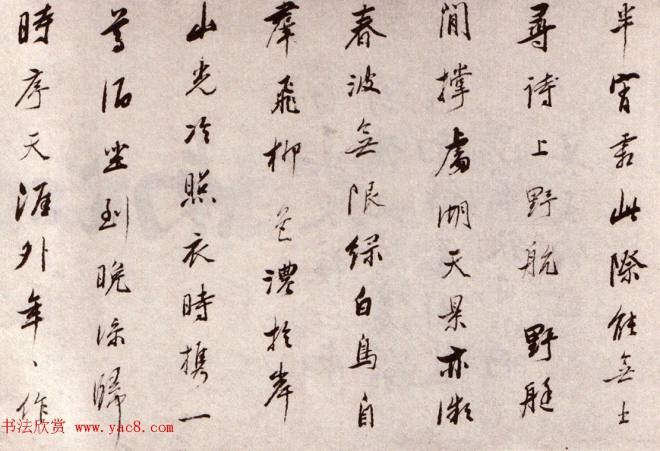 半宵霜此際能無士
尋詩上野航 野艇
閒撐處湖天景亦微
春波無限綠白鳥自
羣飛柳色濃於岸
山光冷照衣時攜一
尊酒坐到晚涼歸
時序天涯外年、作
书法欣赏 www.yac8.com